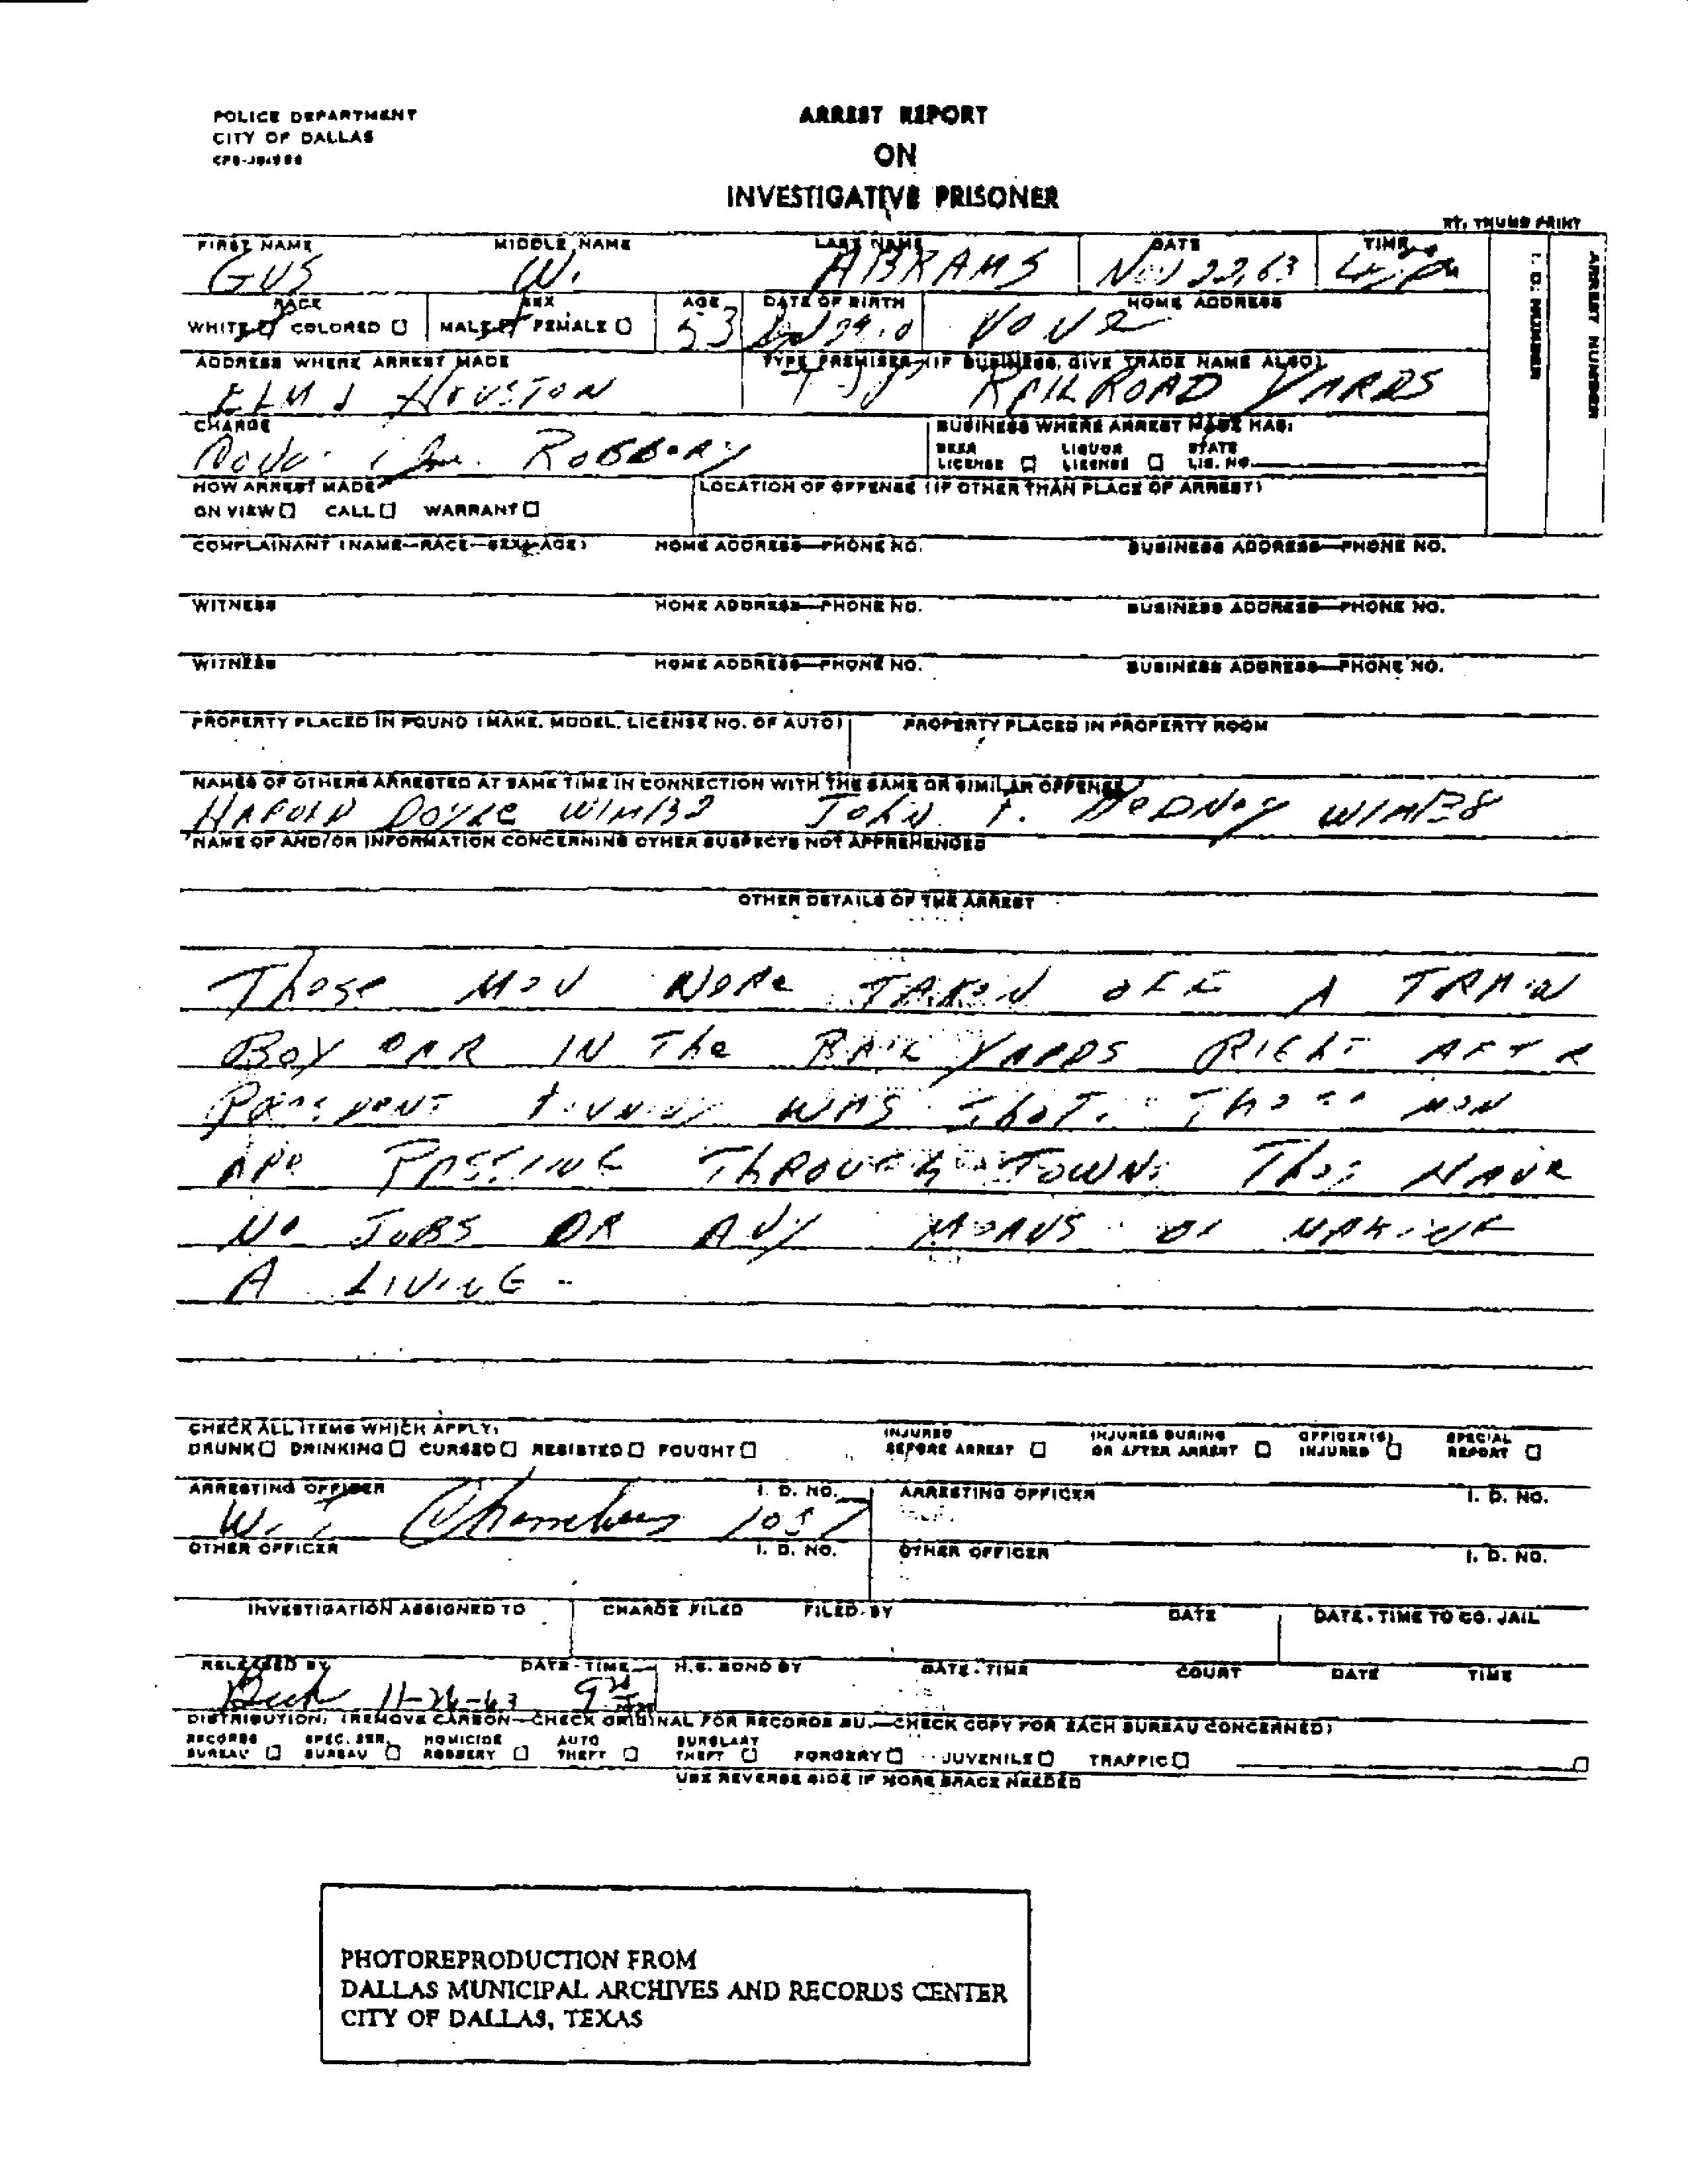 POLICE DEPARTMENT
CITY OF DALLAS
ARREST REPORT
ON
INVESTIGATIVE PRISONER
RT. THUMB PRINT
FIRST NAME MIDDLE NAME LAST NAME DATE TIME
GUS W. ABRAMS NOV 22, 63
I. D. NUMBER
ARREST NUMBER
RACE SEX AGE DATE OF BIRTH HOME ADDRESS
WHITE COLORED MALE FEMALE 53 NONE
ADDRESS WHERE ARREST MADE TYPE PREMISES (IF BUSINESS, GIVE TRADE NAME ALSO)
ELM & HOUSTON RAILROAD YARDS
CHARGE BUSINESS WHERE ARREST MADE HAS:
ROBBERY
BEER LICENSE LIQUOR LICENSE STATE LIC. NO.
HOW ARREST MADE LOCATION OF OFFENSE (IF OTHER THAN PLACE OF ARREST)
ON VIEW CALL WARRANT
COMPLAINANT (NAME—RACE—SEX—AGE) HOME ADDRESS—PHONE NO. BUSINESS ADDRESS—PHONE NO.
WITNESS HOME ADDRESS—PHONE NO. BUSINESS ADDRESS—PHONE NO.
WITNESS HOME ADDRESS—PHONE NO. BUSINESS ADDRESS—PHONE NO.
PROPERTY PLACED IN POUND (MAKE, MODEL, LICENSE NO. OF AUTO) PROPERTY PLACED IN PROPERTY ROOM
NAMES OF OTHERS ARRESTED AT SAME TIME IN CONNECTION WITH THE SAME OR SIMILAR OFFENSE
HAROLD DOYLE W/M/32 JOHN F. GEDNEY W/M/38
NAME OF AND/OR INFORMATION CONCERNING OTHER SUSPECTS NOT APPREHENDED
OTHER DETAILS OF THE ARREST
These MEN WERE TAKEN OFF A TRAIN
BOX CAR IN The RAIL YARDS RIGHT AFTER
PRESIDENT KENNEDY WAS SHOT. THESE MEN
ARE PASSING THROUGH TOWN. They HAVE
NO JOBS OR ANY MEANS OF MAKING
A LIVING.
CHECK ALL ITEMS WHICH APPLY:
DRUNK DRINKING CURSED RESISTED FOUGHT INJURED BEFORE ARREST INJURED DURING OR AFTER ARREST OFFICER(S) INJURED SPECIAL REPORT
ARRESTING OFFICER I. D. NO. ARRESTING OFFICER I. D. NO.
W. Chambers 1057
OTHER OFFICER I. D. NO. OTHER OFFICER I. D. NO.
INVESTIGATION ASSIGNED TO CHARGE FILED FILED BY DATE DATE - TIME TO CO. JAIL
RELEASED BY DATE - TIME H.C. BOND BY DATE - TIME COURT DATE TIME
Beck 11-26-63
DISTRIBUTION: (REMOVE CARBON—CHECK ORIGINAL FOR RECORDS BU.—CHECK COPY FOR EACH BUREAU CONCERNED)
RECORDS BUREAU SPEC. SER. BUREAU HOMICIDE ROBBERY AUTO THEFT BURGLARY THEFT FORGERY JUVENILE TRAFFIC
USE REVERSE SIDE IF MORE SPACE NEEDED
PHOTOREPRODUCTION FROM
DALLAS MUNICIPAL ARCHIVES AND RECORDS CENTER
CITY OF DALLAS, TEXAS